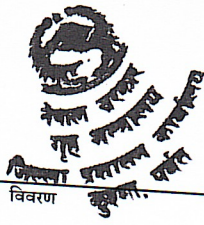 नेपाल सरकार
गृह मन्त्रालय
जिल्ला प्रशासन कार्यालय
कुश्मा, पर्वत
विवरण